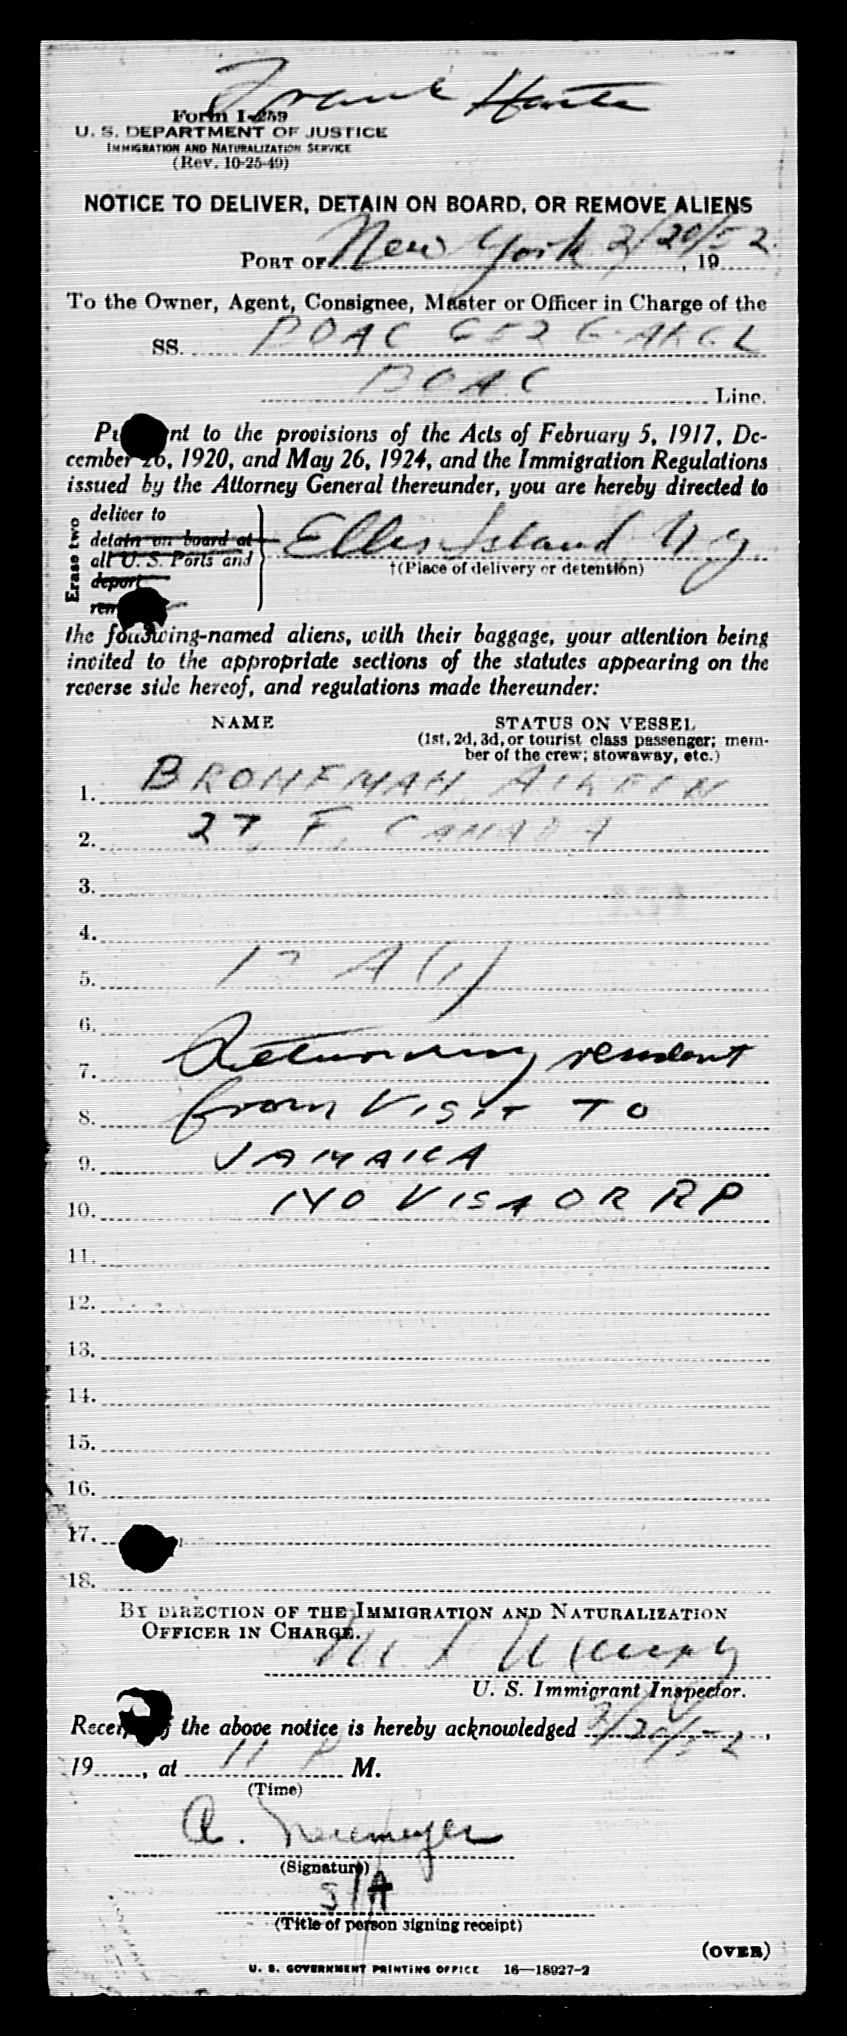 Frank
Form I-259
U. S. DEPARTMENT OF JUSTICE
IMMIGRATION AND NATURALIZATION SERVICE
(Rev. 10-25-49)
NOTICE TO DELIVER, DETAIN ON BOARD, OR REMOVE ALIENS
PORT OF New York 3/20/52, 19
To the Owner, Agent, Consignee, Master or Officer in Charge of the
SS. BOAC 652 G-AKGL
BOAC Line.
Pursuant to the provisions of the Acts of February 5, 1917, De-
cember 26, 1920, and May 26, 1924, and the Immigration Regulations
issued by the Attorney General thereunder, you are hereby directed to
Erase two
deliver to
detain on board at
all U. S. Ports and
deport
Ellis Island N Y.
†(Place of delivery or detention)
the following-named aliens, with their baggage, your attention being
invited to the appropriate sections of the statutes appearing on the
reverse side hereof, and regulations made thereunder:
NAME STATUS ON VESSEL
(1st, 2d, 3d, or tourist class passenger; mem-
ber of the crew; stowaway, etc.)
1. BRONFMAN, AILEEN
2. 27, F, CANADA
3.
4.
5.
6.
7. Returning resident
8. from VISIT TO
9. JAMAICA
10. NO VISA OR RP
11.
12.
13.
14.
15.
16.
17.
18.
BY DIRECTION OF THE IMMIGRATION AND NATURALIZATION
OFFICER IN CHARGE.
U. S. Immigrant Inspector.
Receipt of the above notice is hereby acknowledged 3/20/52,
19, at 11 P M.
(Time)
A. Niemeyer
(Signature)
S/A
(Title of person signing receipt)
(OVER)
U. S. GOVERNMENT PRINTING OFFICE 16—18927-2